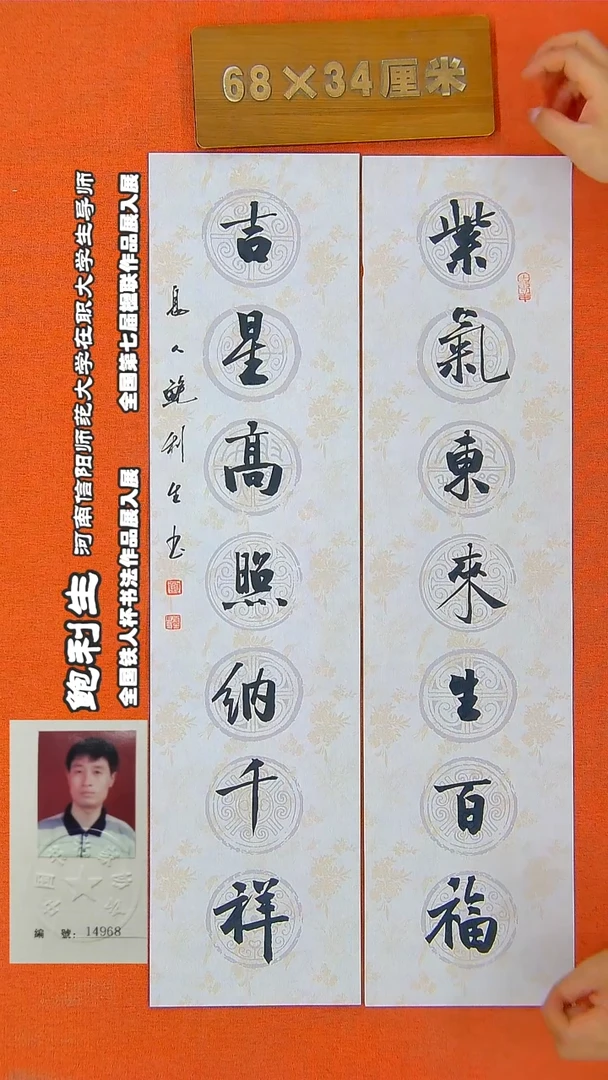 68×34厘米
紫氣東來生百福
吉星高照纳千祥
鲍利生书
鲍利生 河南信阳师范大学在职大学生导师
全国铁人杯书法作品展入展 全国第七届楹联作品展入展
編 號: 14968